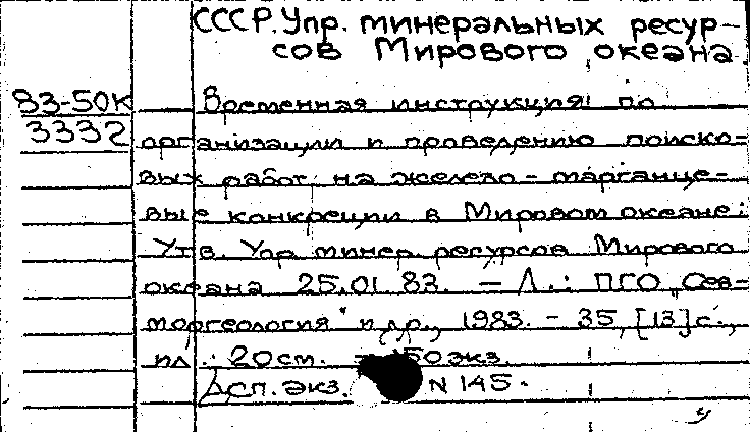 СССР. Упр. минеральных ресур-
сов Мирового океана.
83-50к
3332
Временная инструкция по
организации и проведению поиско-
вых работ на железо-марганце-
вые конкреции в Мировом океане:
Утв. Упр. минер. ресурсов Мирового
океана 25.01.83. — Л.: ПГО „Сев-
моргеология" и др., 1983. - 35, [13] с.,
ил.: 20 см. — 150 экз.
Дсп. экз. N 145.